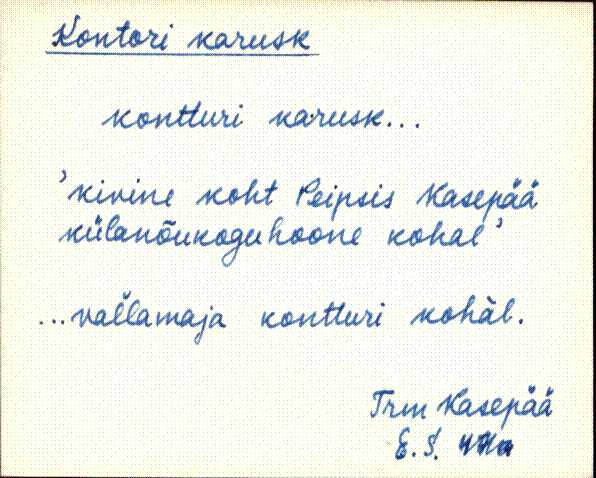 Kontori karusk
kontturi karusk...
'kivine koht Peipsis Kasepää
külanõukoguhoone kohal'
...vallamaja kontturi kohal.
Trm Kasepää
E. S.